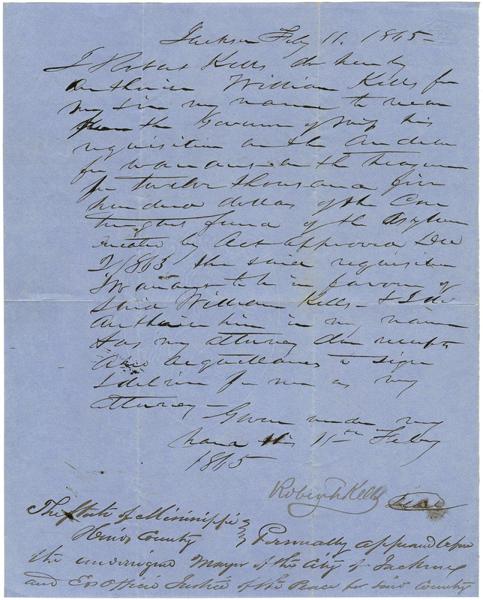 Jackson Feby 11. 1865-
I Robert Kells do hereby
authorise William Kells for
me & in my name to receive
from the Governor of Miss his
requisition on the Auditor
for warrants on the treasury
for twelve thousand five
hundred dollars of the Con
tingent fund of the Asylum
created by Act approved Dec
2/1863 the said requisition
& warrants to be in favor of
said William Kells & I do
authorise him in my name
as my attorney due receipts
and acquittances to sign
& deliver for me as my
attorney-
Given under my
hand this 11th Feby
1865
Robert Kells Seal
The State of Mississippi
Hinds County Personally appeared before
the undersigned Mayor of the City of Jackson
and Ex Officio Justice of the Peace for said County